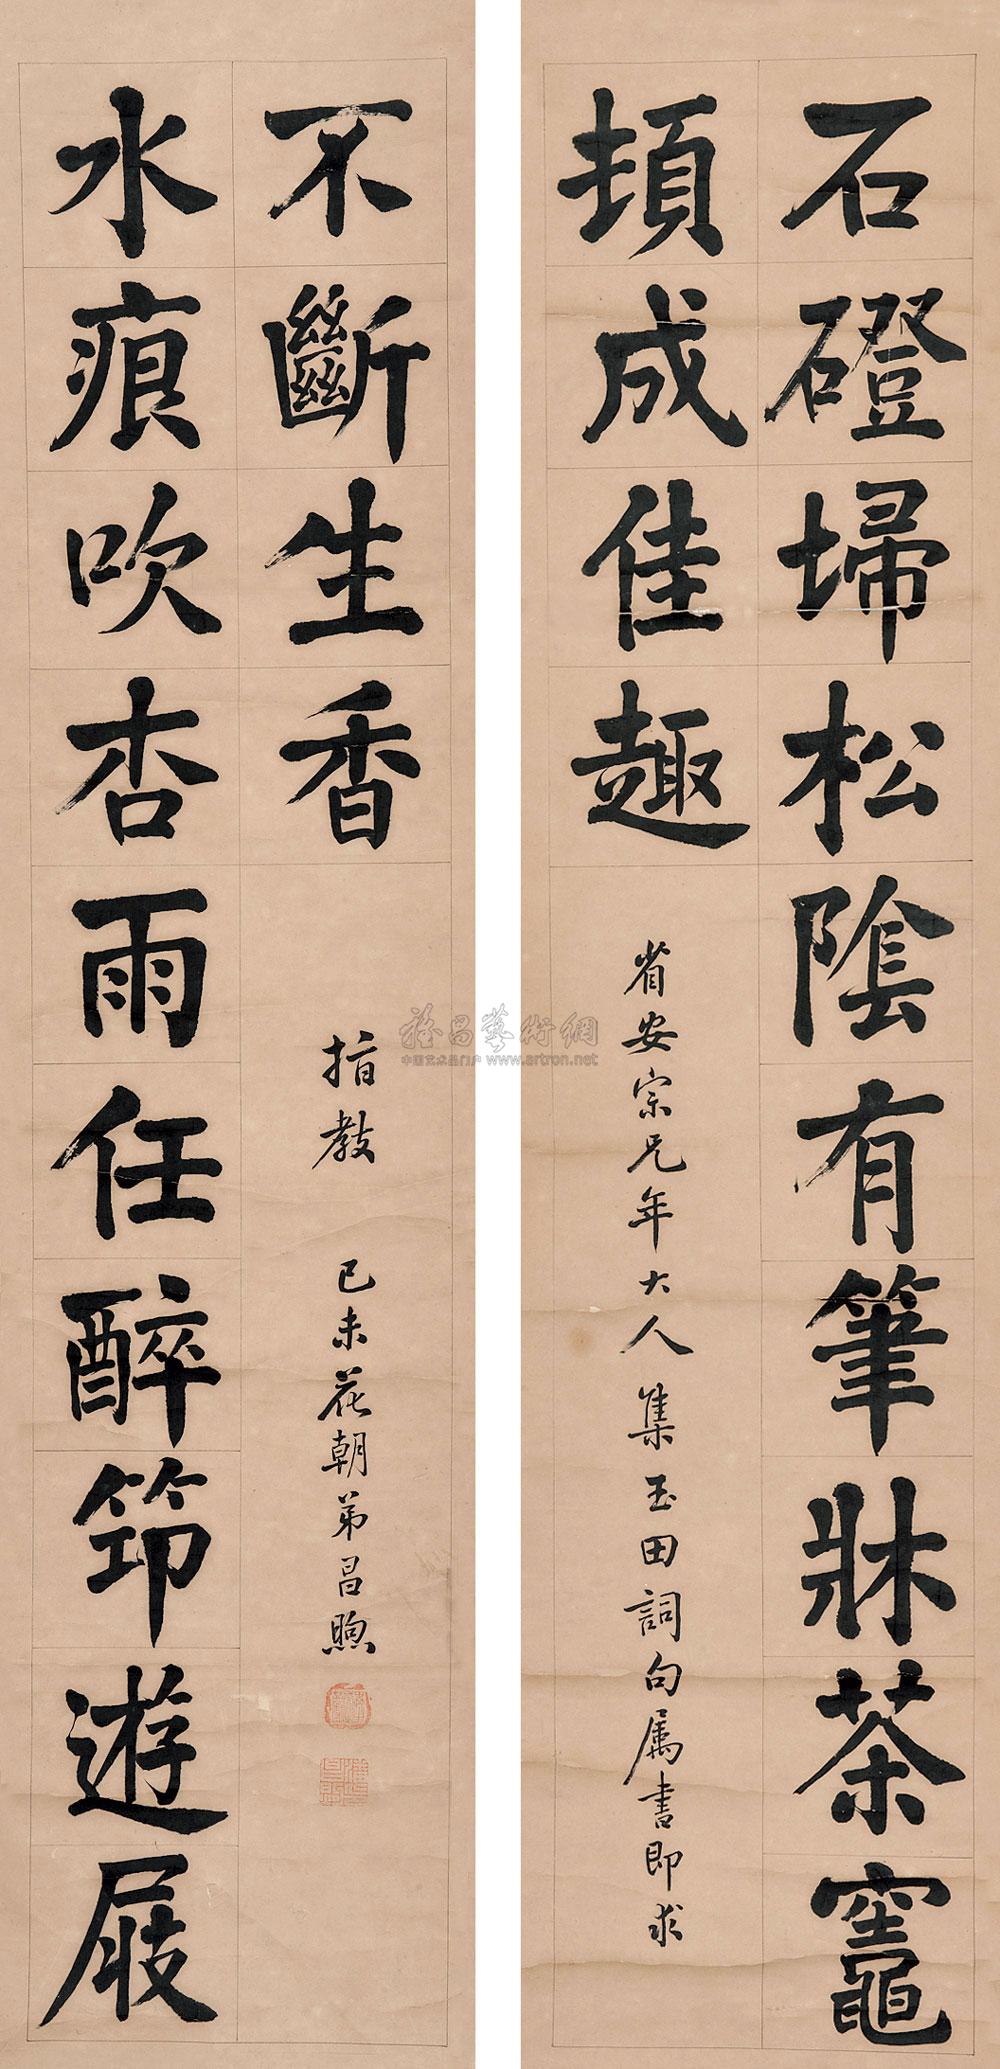 石磴埽松陰有筆牀茶竈
頓成佳趣
省安宗兄年大人集玉田詞句属書即求
水痕吹杏雨任醉筇遊屐
不斷生香
指教 己未花朝弟昌煦
雅昌藝術網
中国艺术品门户 www.artron.net